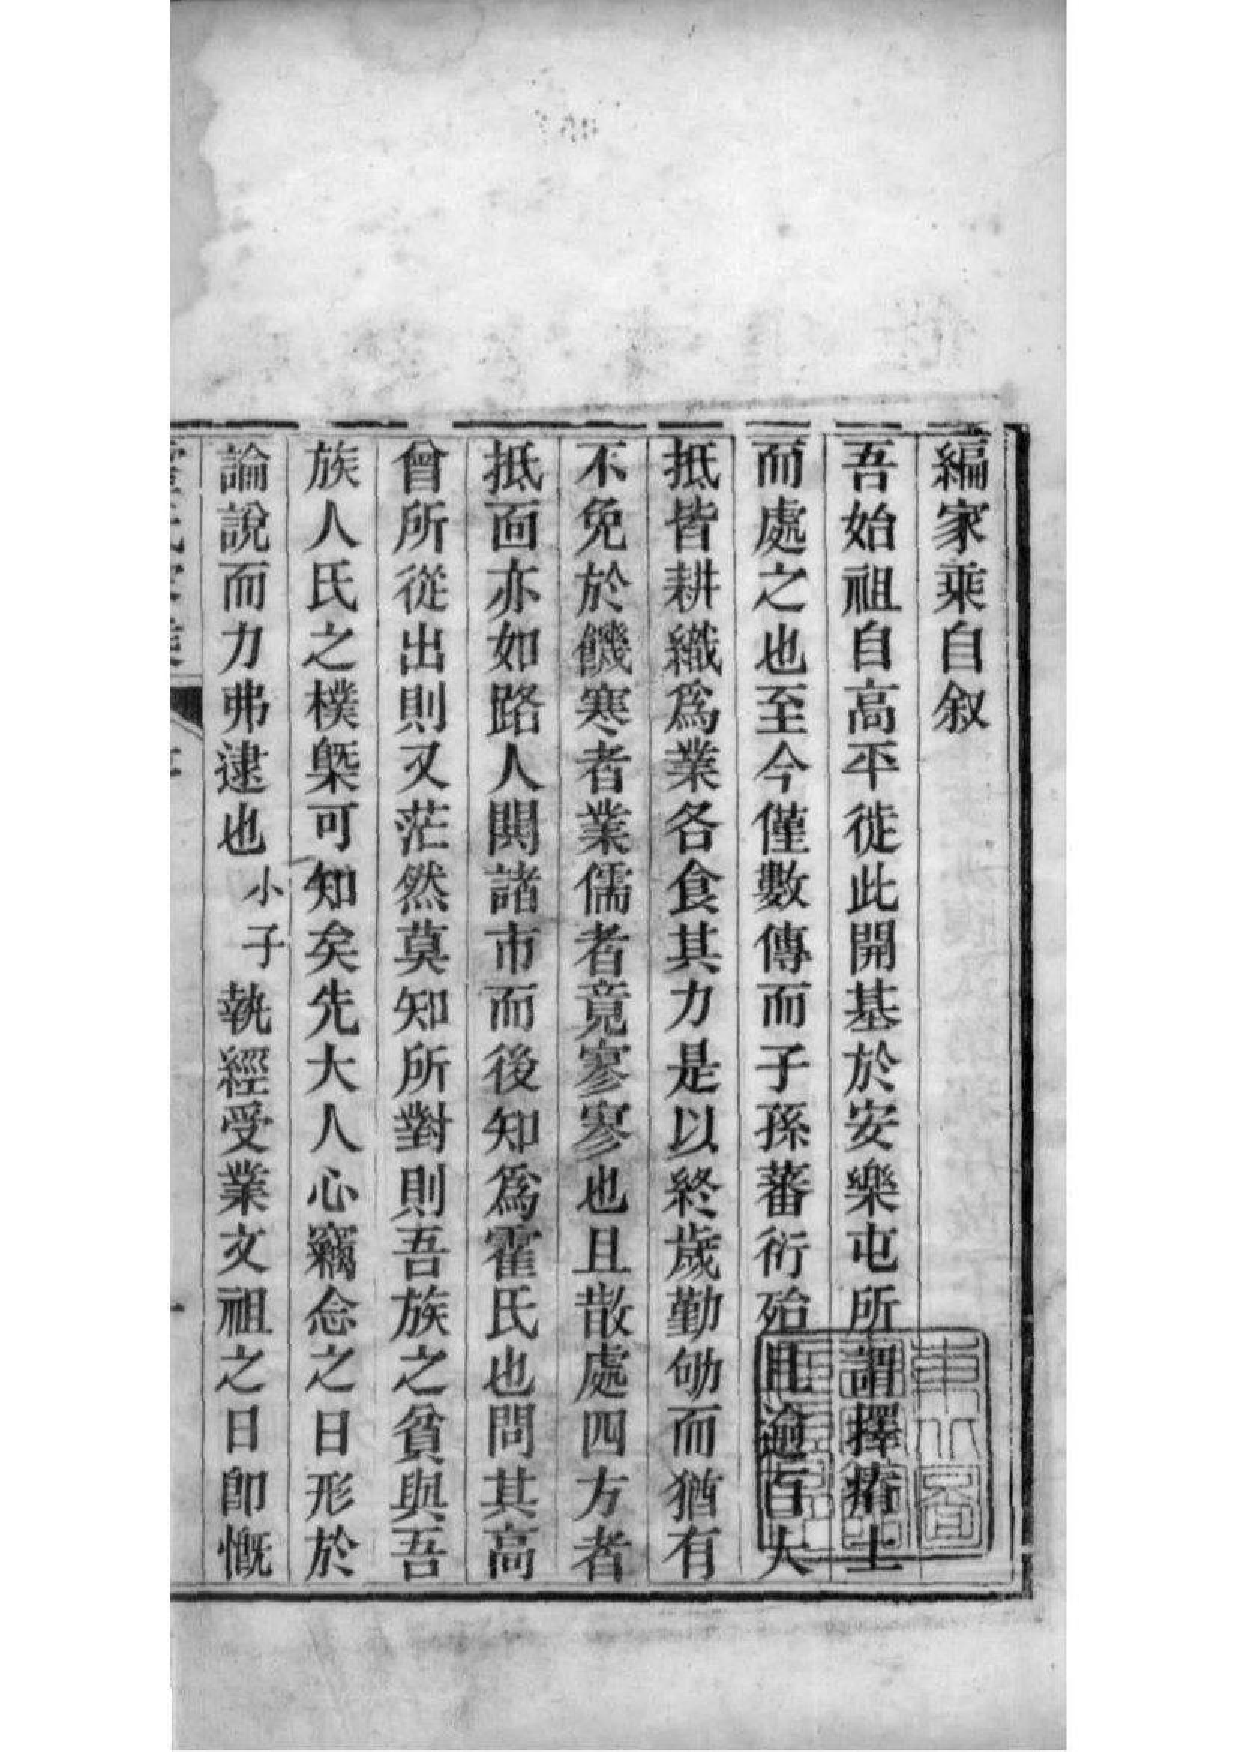 編家乘自叙
吾始祖自高平徙此開基於安樂屯所謂擇瘠土
而處之也至今僅數傳而子孫蕃衍殆且逾百大
抵皆耕織爲業各食其力是以終歲勤劬而猶有
不免於饑寒者業儒者竟寥寥也且散處四方者
抵面亦如路人閧諸市而後知爲霍氏也問其高
曾所從出則又茫然莫知所對則吾族之貧與吾
族人氏之樸槩可知矣先大人心竊念之日形於
論說而力弗逮也小子執經受業文祖之日卽慨